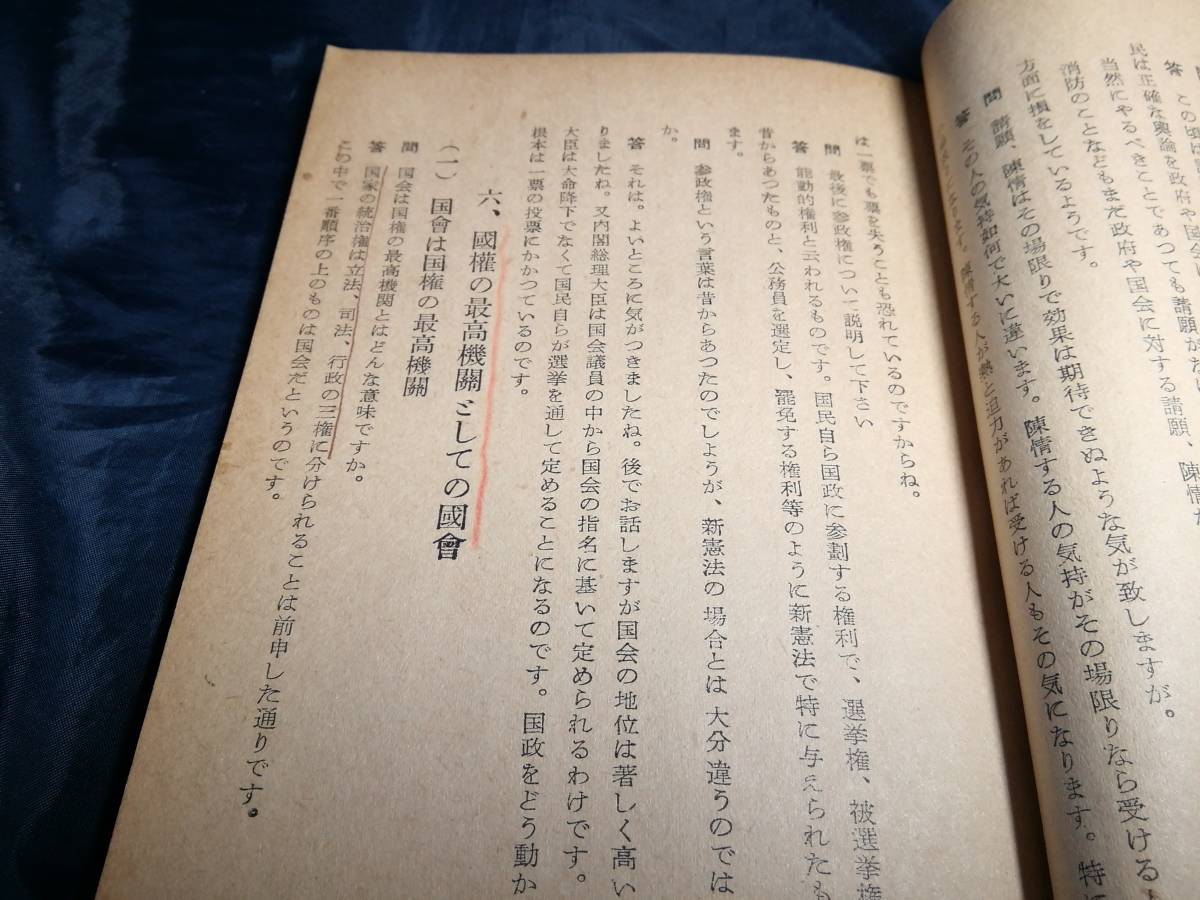 この頃は
答
民は正確な輿論を政府や国会
当然にやるべきことであつても請願が
消防のことなどもまだ政府や国会に対する請願、陳情
方面に損をしているようです。
問 請願、陳情はその場限りで効果は期待できぬような気が致しますが。
答 その人の気持如何で大いに違います。陳情する人の気持がその場限りなら受ける
陳情する人が熱と迫力があれば受ける人もその気になります。特に
は一票でも票を失うことも恐れているのですからね。
問 最後に参政権について説明して下さい
答 能動的権利と云われるものです。国民自ら国政に参劃する権利で、選挙権、被選挙権
昔からあつたものと、公務員を選定し、罷免する権利等のように新憲法で特に与えられたも
ます。
問 参政権という言葉は昔からあつたのでしようが、新憲法の場合とは大分違うのでは
か。
答 それは。よいところに気がつきましたね。後でお話しますが国会の地位は著しく高い
りましたね。又内閣総理大臣は国会議員の中から国会の指名に基いて定められるわけです。
大臣は大命降下でなくて国民自らが選挙を通して定めることになるのです。国政をどう動か
根本は一票の投票にかかつているのです。
六、國權の最高機關としての國會
(一) 国會は国権の最高機關
問 国会は国権の最高機関とはどんな意味ですか。
答 国家の統治権は立法、司法、行政の三権に分けられることは前申した通りです。
この中で一番順序の上のものは国会だというのです。